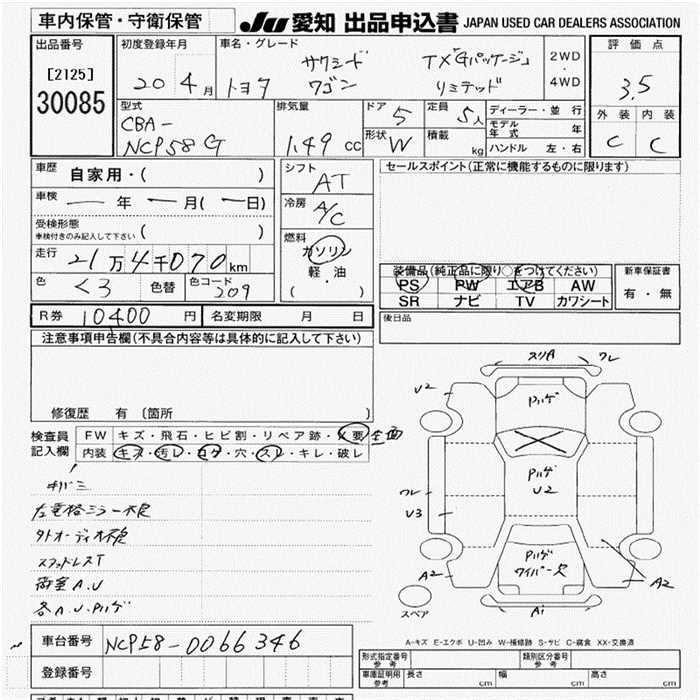 車内保管・守衛保管 JU 愛知 出品申込書 JAPAN USED CAR DEALERS ASSOCIATION
出品番号 初度登録年月 車名・グレード 評価点
[2125] 20年 4月 トヨタ サクシード ワゴン TX「Gパッケージ」 リミテッド 2WD・4WD 3.5
30085
型式 排気量 ドア 5 定員 5人 ディーラー・並行 外装 内装
CBA- モデル年式 年 C C
NCP58G 1.49 cc 形状 W 積載 kg ハンドル 左・右
車歴 自家用・( ) シフト AT セールスポイント(正常に機能するものに限ります)
車検 ― 年 ― 月(― 日) 冷房 A/C
受検形態 ( )
車検付きのみ記入して下さい
燃料 ガソリン
走行 21万4千070km 軽・油
装備品(純正品に限り○をつけてください) 新車保証書
色 クロ 色替 色コード 209 ( ) PS PW エアB AW 有・無
SR ナビ TV カワシート
R券 10400円 名変期限 月 日 後日品
注意事項申告欄(不具合内容等は具体的に記入して下さい)
スリA ワレ
U2 Pハゲ
修復歴 有 [箇所 ]
検査員 FW キズ・飛石・ヒビ割・リペア跡・X要 全面
記入欄 内装 キズ・汚レ・コゲ・穴・スレ・キレ・破レ
Pハゲ
U2
キバミ ワレ
左電格ミラー不良 U3
外オーディオ不良
スタッドレスT Pハゲ
ワイパー欠
荷室A.U A2 A2
各A.U.Pハゲ スペア A1
A-キズ E-エクボ U-凹み W-補修跡 S-サビ C-腐食 XX-交換済
車台番号 NCP58-0066346
形式指定番号 参考 類別区分番号 参考
登録番号 車庫証明用 参考 長さ cm 幅 cm 高さ cm